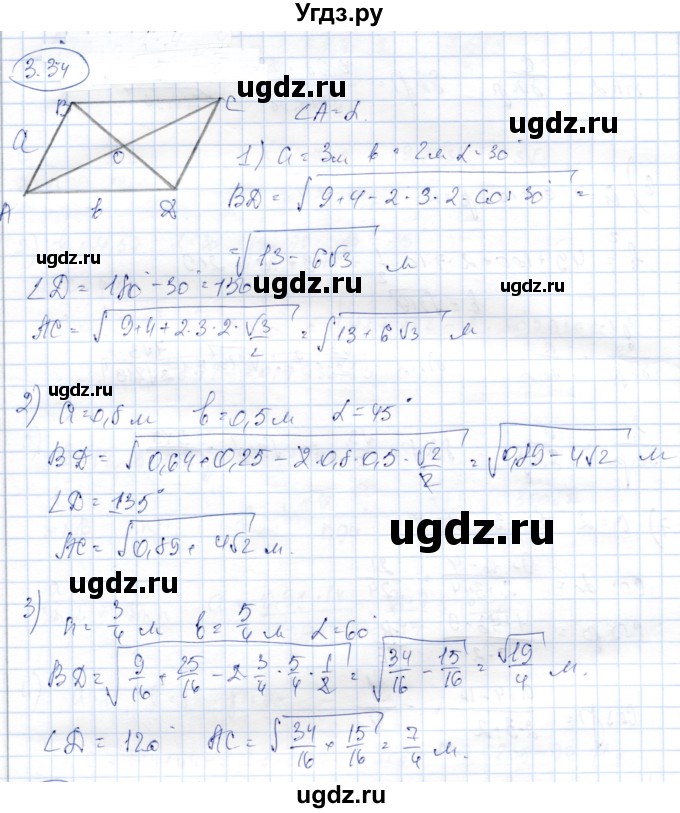 Угдз.ру
3.34
B
C
a
O
A
b
D
ugdz.ru
∠A = α.
1) a = 3м b = 2м α = 30°
BD = √(9+4-2·3·2·cos 30°) =
= √(13 - 6√3) м
ugdz.ru
∠D = 180° - 30° = 150°
ugdz.ru
AC = √(9+4+2·3·2·√3/2) = √(13+6√3) м
ugdz.ru
2) a = 0,8 м b = 0,5 м α = 45°
BD = √(0,64+0,25-2·0,8·0,5·√2/2) = √(0,89-4√2) м
∠D = 135°
AC = √(0,89+4√2) м.
ugdz.ru
ugdz.ru
3) a = 3/4 м b = 5/4 м α = 60°
BD = √(9/16 + 25/16 - 2·3/4·5/4·1/2) = √(34/16 - 15/16) = √19/4 м.
ugdz.ru
∠D = 120° AC = √(34/16 + 15/16) = 7/4 м.
ugdz.ru
ugdz.ru